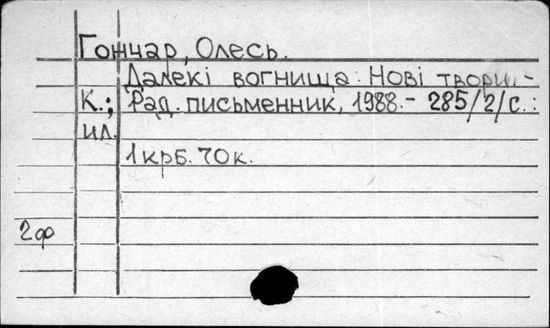 Гончар, Олесь.
Далекі вогнища: Нові твори. -
К.; Рад. письменник, 1988.- 285/2/с.:
ил.
1 крб. 70к.
2ф